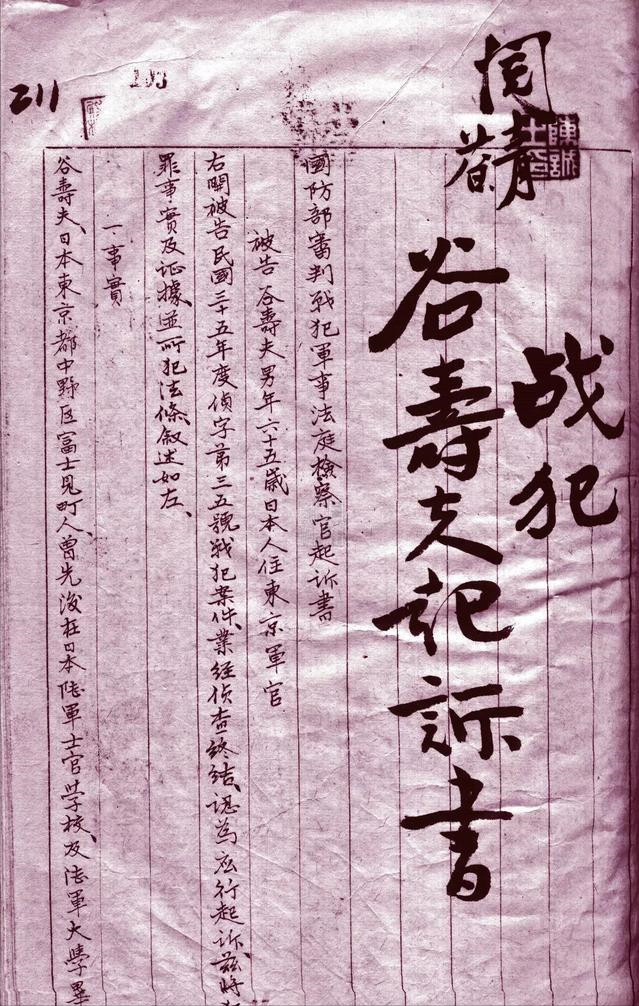 閱
陳誠
战犯
谷壽夫起訴書
國防部審判戰犯軍事法庭檢察官起訴書
被告 谷壽夫男年六十五歲日本人住東京軍官
右開被告民國三十五年度偵字第三五號戰犯案件業經偵查終結、認為应行起訴、茲將
罪事實及证據並所犯法條叙述如左、
一事實
谷壽夫、日本東京都中野区富士見町人、曾先後在日本陸軍士官學校、及陸軍大學畢
211
193